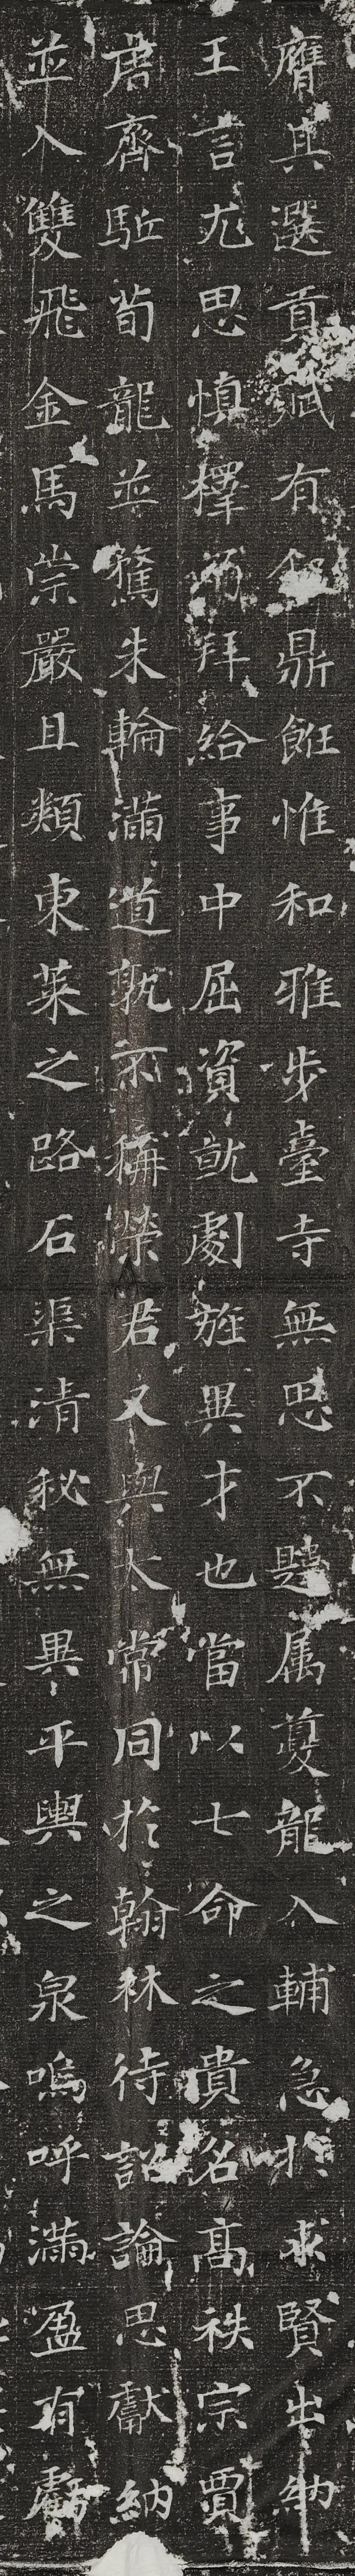 膺其選貢賦有倫鼎飪惟和雅步臺寺無思不韙属夔龍入輔急扵求賢出納
王言尤思慎擇而拜給事中屈資就劇旌異才也當以七命之貴名高秩宗賈
君齊駈荀龍並騖朱輪滿道孰不稱榮君又與太常同扵翰林待詔論思獻納
並入雙飛金馬崇嚴且類東萊之路石渠清秘無異平輿之泉嗚呼滿盈有虧